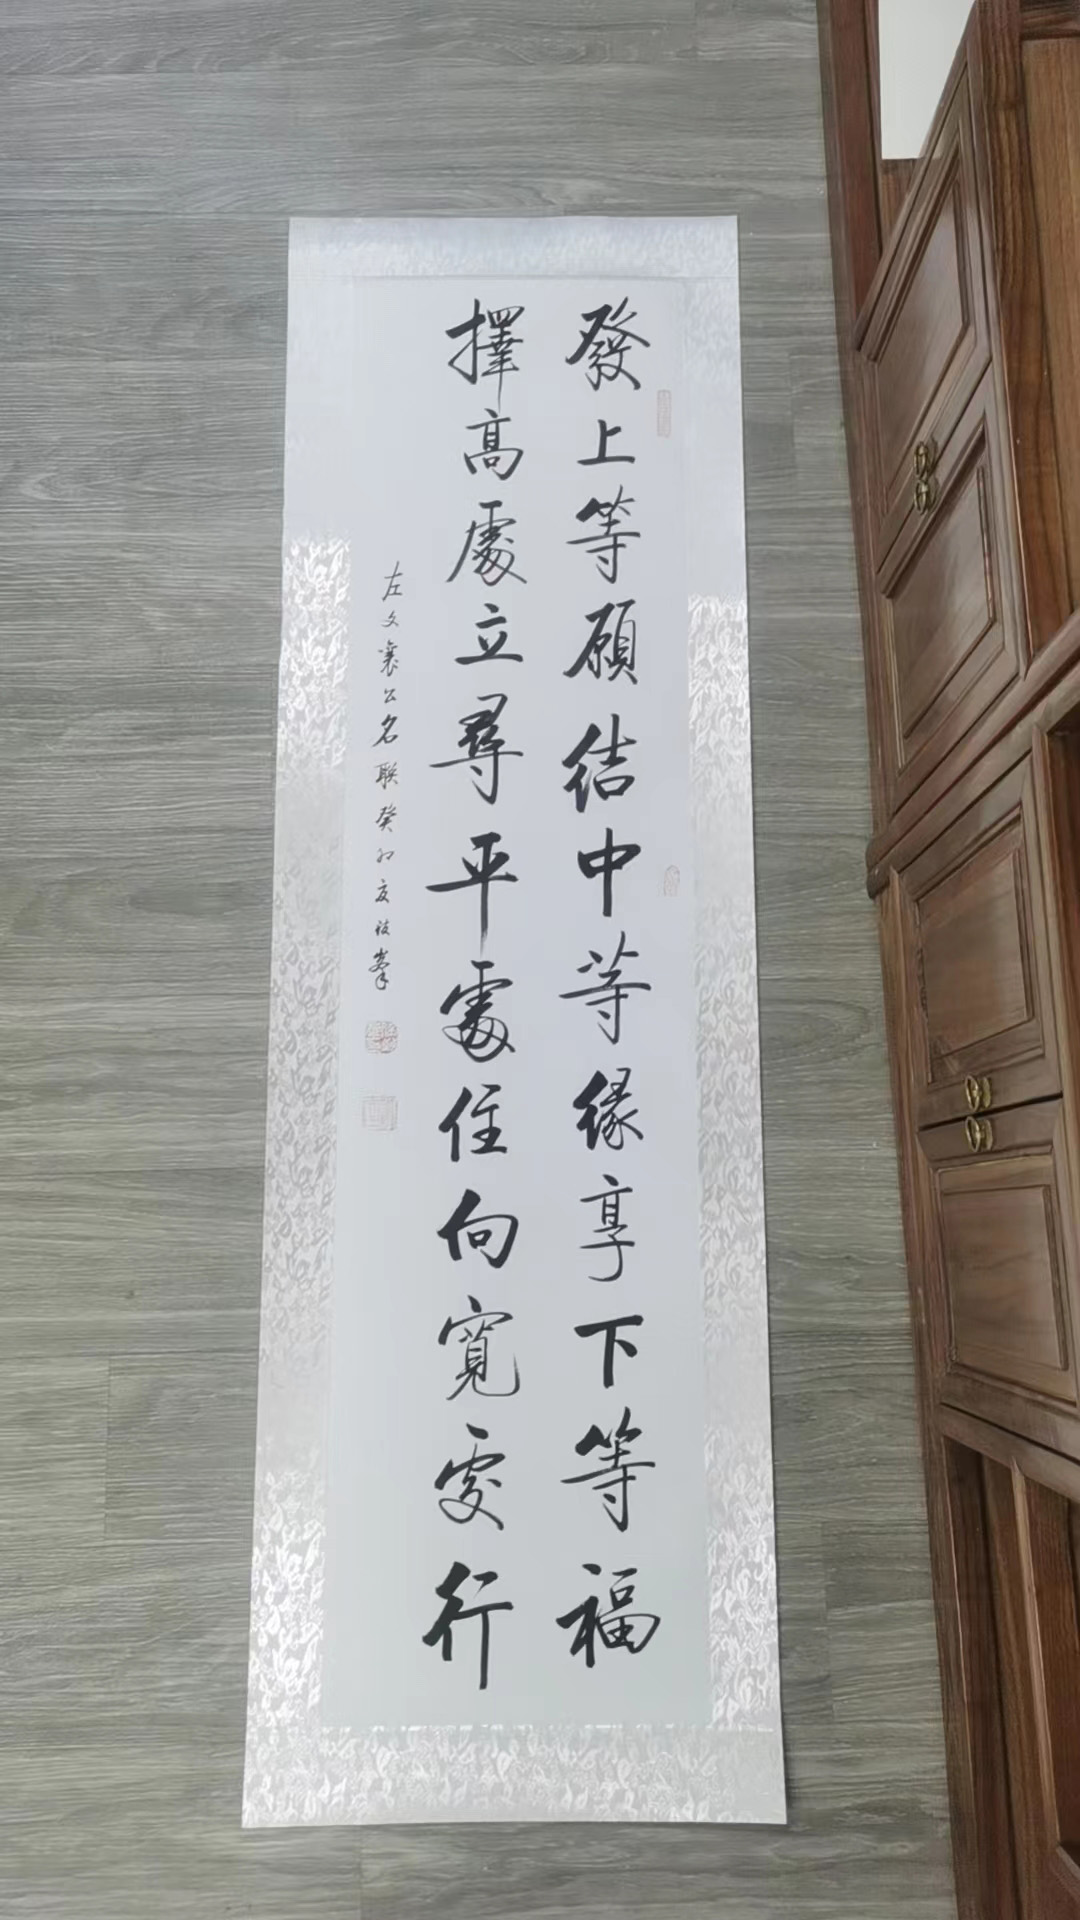 發上等願結中等緣享下等福
擇高處立尋平處住向寬處行
左文襄公名联癸卯夏